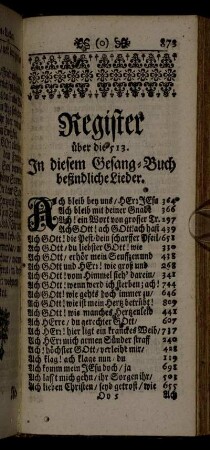 (o) 873
Register
über die 513.
In diesem Gesang-Buch
befindliche Lieder.
Ach bleib bey uns/ HErr JEsu 364
Ach bleib mit deiner Gnade 366
Ach! ein Wort von grosser Tr. 197
Ach GOtt! ach GOtt! ach hast 439
Ach GOtt! die Pest/ dein scharffer Pfeil 651
Ach GOtt/ du liebster GOtt! wie 330
Ach GOtt/ erhör mein Seuffzen und 438
Ach GOtt und HErr! wie groß und 268
Ach GOtt! vom Himmel sieh darein/ 341
Ach GOtt! wenn werd ich sterben; ach! 744
Ach GOtt! wie gehts doch immer zu 646
Ach GOtt! wie ist mein Hertz betrübt! 809
Ach GOtt! wie manches Hertzenleid 441
Ach HErre/ du gerechter GOtt/ 607
Ach HErr! hier ligt ein kranckes Weib/ 717
Ach HErr mich armen Sünder straff 240
Ach! höchster GOtt/ verleiht mir/
Ach! klag! ach klage nun/ du 119
Ach komm mein JEsu doch/ ja 691
Ach laßt mich gehn/ ihr Sorgen ihr/ 635
Ach lieben Christen/ seyd getrost/ wie 655
Oo 5 Ach